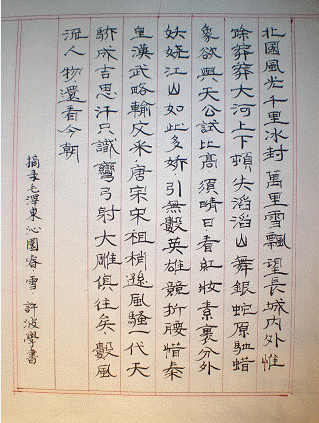 北國風光千里冰封萬里雪飄望長城内外惟
餘莽莽大河上下頓失滔滔山舞銀蛇原馳蜡
象欲與天公試比高須晴日看紅妝素裹分外
妖嬈江山如此多嬌引無數英雄競折腰惜秦
皇漢武略輸文采唐宗宋祖梢遜風騷一代天
驕成吉思汗只識彎弓射大雕俱往矣數風
流人物還看今朝
摘录毛澤東沁園春雪 許波學書